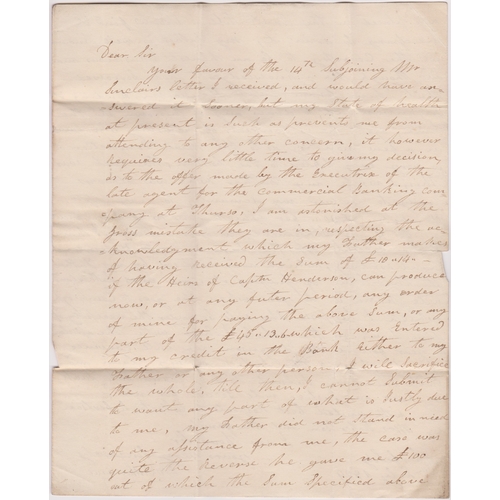 Dear Sir
Your favour of the 14th Subjoining Mr
Sinclairs letter I received, and would have an-
-swered it sooner, but my state of health
at present is such as prevents me from
attending to any other concern, it however
requires very little time to giving decision
as to the offer made by the Executrix of the
late agent for the commercial Banking com-
-pany at Thurso, I am astonished at the
Gross mistake they are in, respecting the ac
-knowledgment which my Father makes
of having received the sum of £10.14.-
if the Heirs of Captn Henderson, can produce
now, or at any futer period, any order
of mine for paying the above Sum, or any
part of the £45.13.6 which was Entered
to my credit in the Bank Either to my
Father or any other person, I will Sacrifice
the whole, till then, I cannot Submit
to want any part of what is Justly due
to me, my Father did not Stand in need
of any assistance from me, the case was
quite the reverse he gave me £100
out of which the Sum Specified above